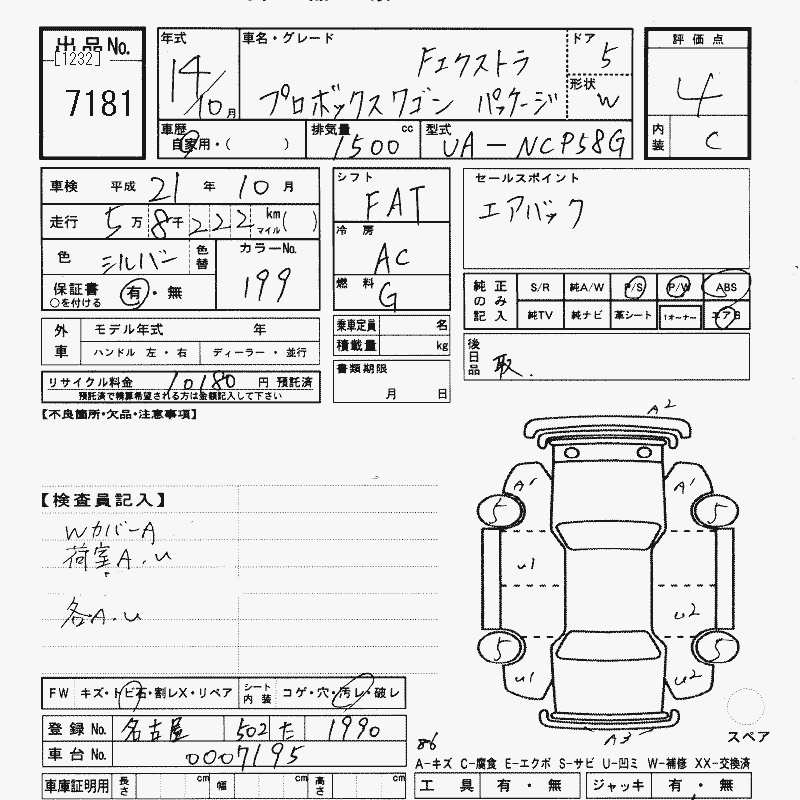 出品No.
[1232]
7181
年式
14/10月
車名・グレード
Fエクストラ
プロボックスワゴン パッケージ
ドア
5
形状
W
車歴
自家用・( )
排気量 cc
1500
型式
UA-NCP58G
評価点
4
内装
C
車検 平成 21 年 10 月
走行 5万8千222 km マイル( )
色 シルバー
色替
カラーNo.
199
保証書
○を付ける
有・無
シフト
FAT
冷房
AC
燃料
G
セールスポイント
エアバック
純正のみ記入
S/R 純A/W P/S P/W ABS
純TV 純ナビ 革シート 1オーナー エアB
外車
モデル年式 年
ハンドル 左・右 ディーラー・並行
乗車定員 名
積載量 kg
後日品
取.
リサイクル料金 10180 円 預託済
預託済で精算希望される方は金額記入して下さい
書類期限
月 日
【不良箇所・欠品・注意事項】
【検査員記入】
WカバーA
荷室A.U
各A.U
A2
A1 A1
5 5
U1
U2
5 5
U1 U2
A3
スペア
FW キズ・トビ石・割レX・リペア
シート内装 コゲ・穴・汚レ・破レ
登録No. 名古屋 502 た 1990
車台No. 0007195
86
A-キズ C-腐食 E-エクボ S-サビ U-凹ミ W-補修 XX-交換済
車庫証明用 長さ cm 幅 cm 高さ cm
工具 有・無 ジャッキ 有・無